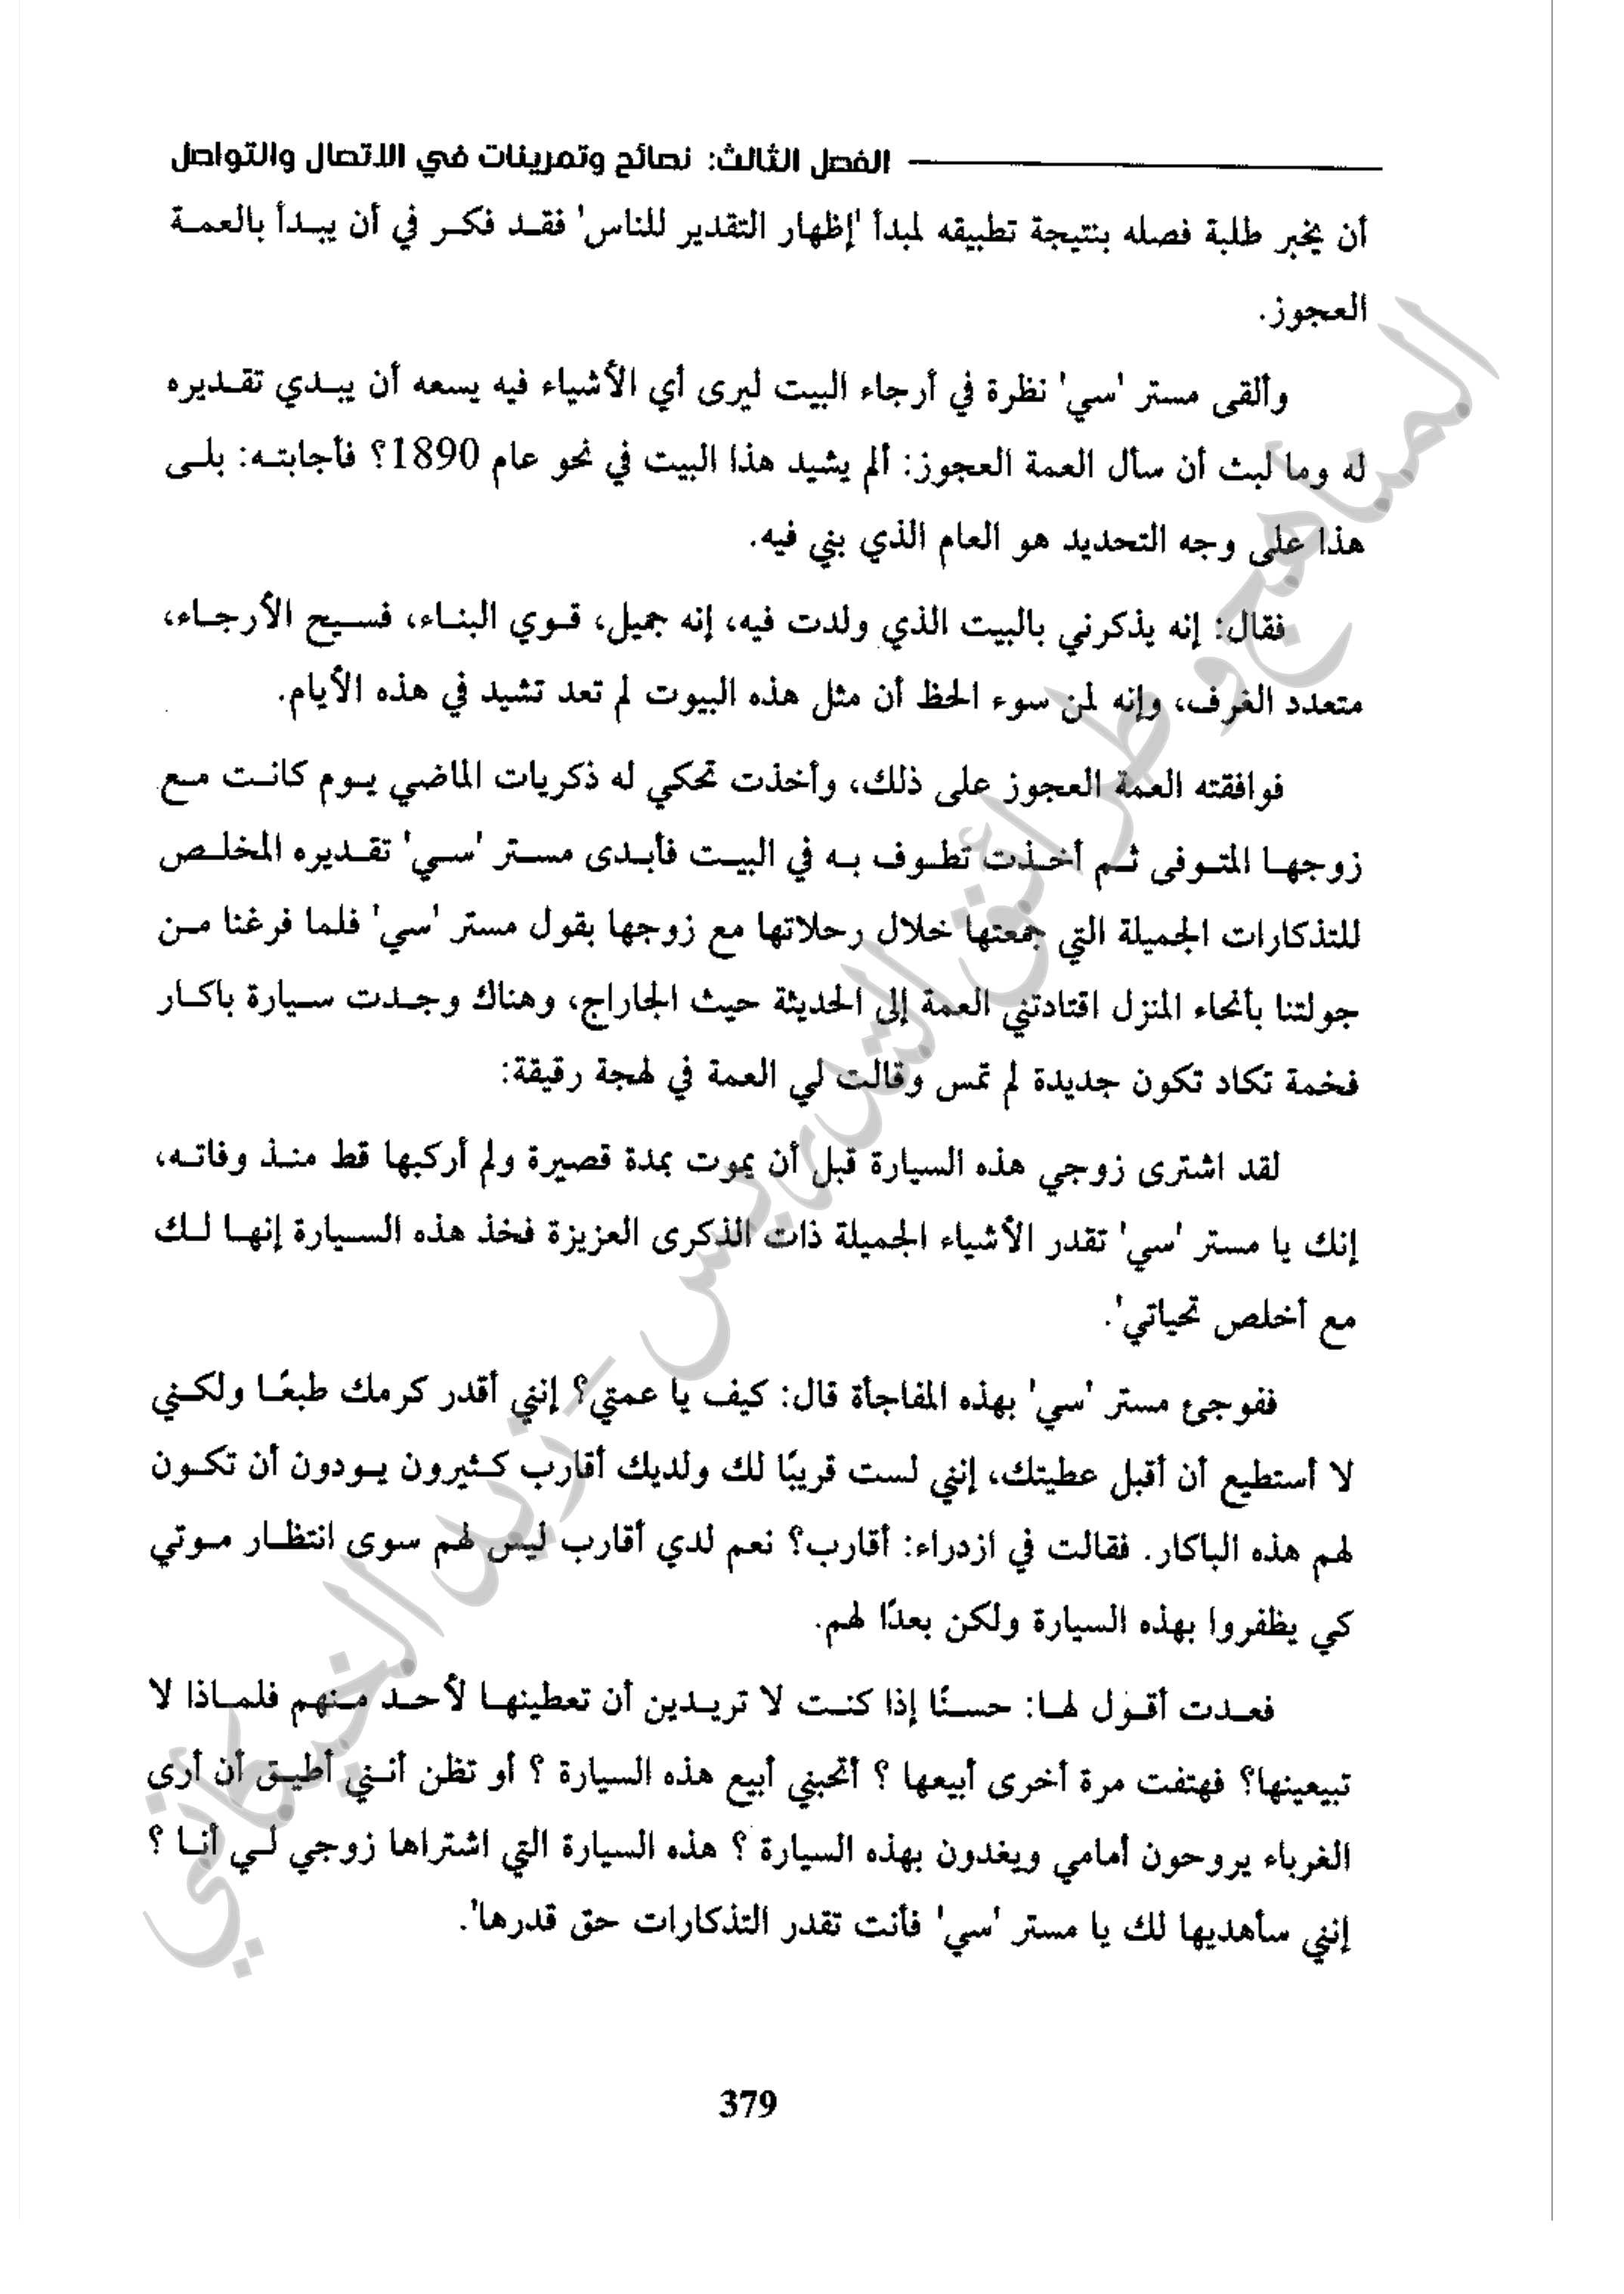 الفصل الثالث: نصائح وتمرينات في الاتصال والتواصل
أن يخبر طلبة فصله بنتيجة تطبيقه لمبدأ 'إظهار التقدير للناس' فقد فكر في أن يبدأ بالعمة
العجوز.
وألقى مستر 'سي' نظرة في أرجاء البيت ليرى أي الأشياء فيه يسعه أن يبدي تقديره
له وما لبث أن سأل العمة العجوز: ألم يشيد هذا البيت في نحو عام 1890؟ فأجابته: بلى
هذا على وجه التحديد هو العام الذي بني فيه.
فقال: إنه يذكرني بالبيت الذي ولدت فيه، إنه جميل، قوي البناء، فسيح الأرجاء،
متعدد الغرف، وإنه لمن سوء الحظ أن مثل هذه البيوت لم تعد تشيد في هذه الأيام.
فوافقته العمة العجوز على ذلك، وأخذت تحكي له ذكريات الماضي يوم كانت مع
زوجها المتوفى ثم أخذت تطوف به في البيت فأبدى مستر 'سي' تقديره المخلص
للتذكارات الجميلة التي جمعتها خلال رحلاتها مع زوجها بقول مستر 'سي' فلما فرغنا من
جولتنا بأنحاء المنزل اقتادتني العمة إلى الحديثة حيث الجاراج، وهناك وجدت سيارة باكار
فخمة تكاد تكون جديدة لم تمس وقالت لي العمة في لهجة رقيقة:
لقد اشترى زوجي هذه السيارة قبل أن يموت بمدة قصيرة ولم أركبها قط منذ وفاته،
إنك يا مستر 'سي' تقدر الأشياء الجميلة ذات الذكرى العزيزة فخذ هذه السيارة إنها لك
مع أخلص تحياتي'.
ففوجئ مستر 'سي' بهذه المفاجأة قال: كيف يا عمتي؟ إنني أقدر كرمك طبعًا ولكني
لا أستطيع أن أقبل عطيتك، إنني لست قريبًا لك ولديك أقارب كثيرون يودون أن تكون
لهم هذه الباكار. فقالت في ازدراء: أقارب؟ نعم لدي أقارب ليس لهم سوى انتظار موتي
كي يظفروا بهذه السيارة ولكن بعدًا لهم.
فعدت أقول لها: حسنًا إذا كنت لا تريدين أن تعطينها لأحد منهم فلماذا لا
تبيعينها؟ فهتفت مرة أخرى أبيعها ؟ أتحبني أبيع هذه السيارة ؟ أو تظن أنني أطيق أن أرى
الغرباء يروحون أمامي ويغدون بهذه السيارة ؟ هذه السيارة التي اشتراها زوجي لي أنا ؟
إنني سأهديها لك يا مستر 'سي' فأنت تقدر التذكارات حق قدرها'.
379
المناهج وطرائق التدريس - زيد الخيكاني